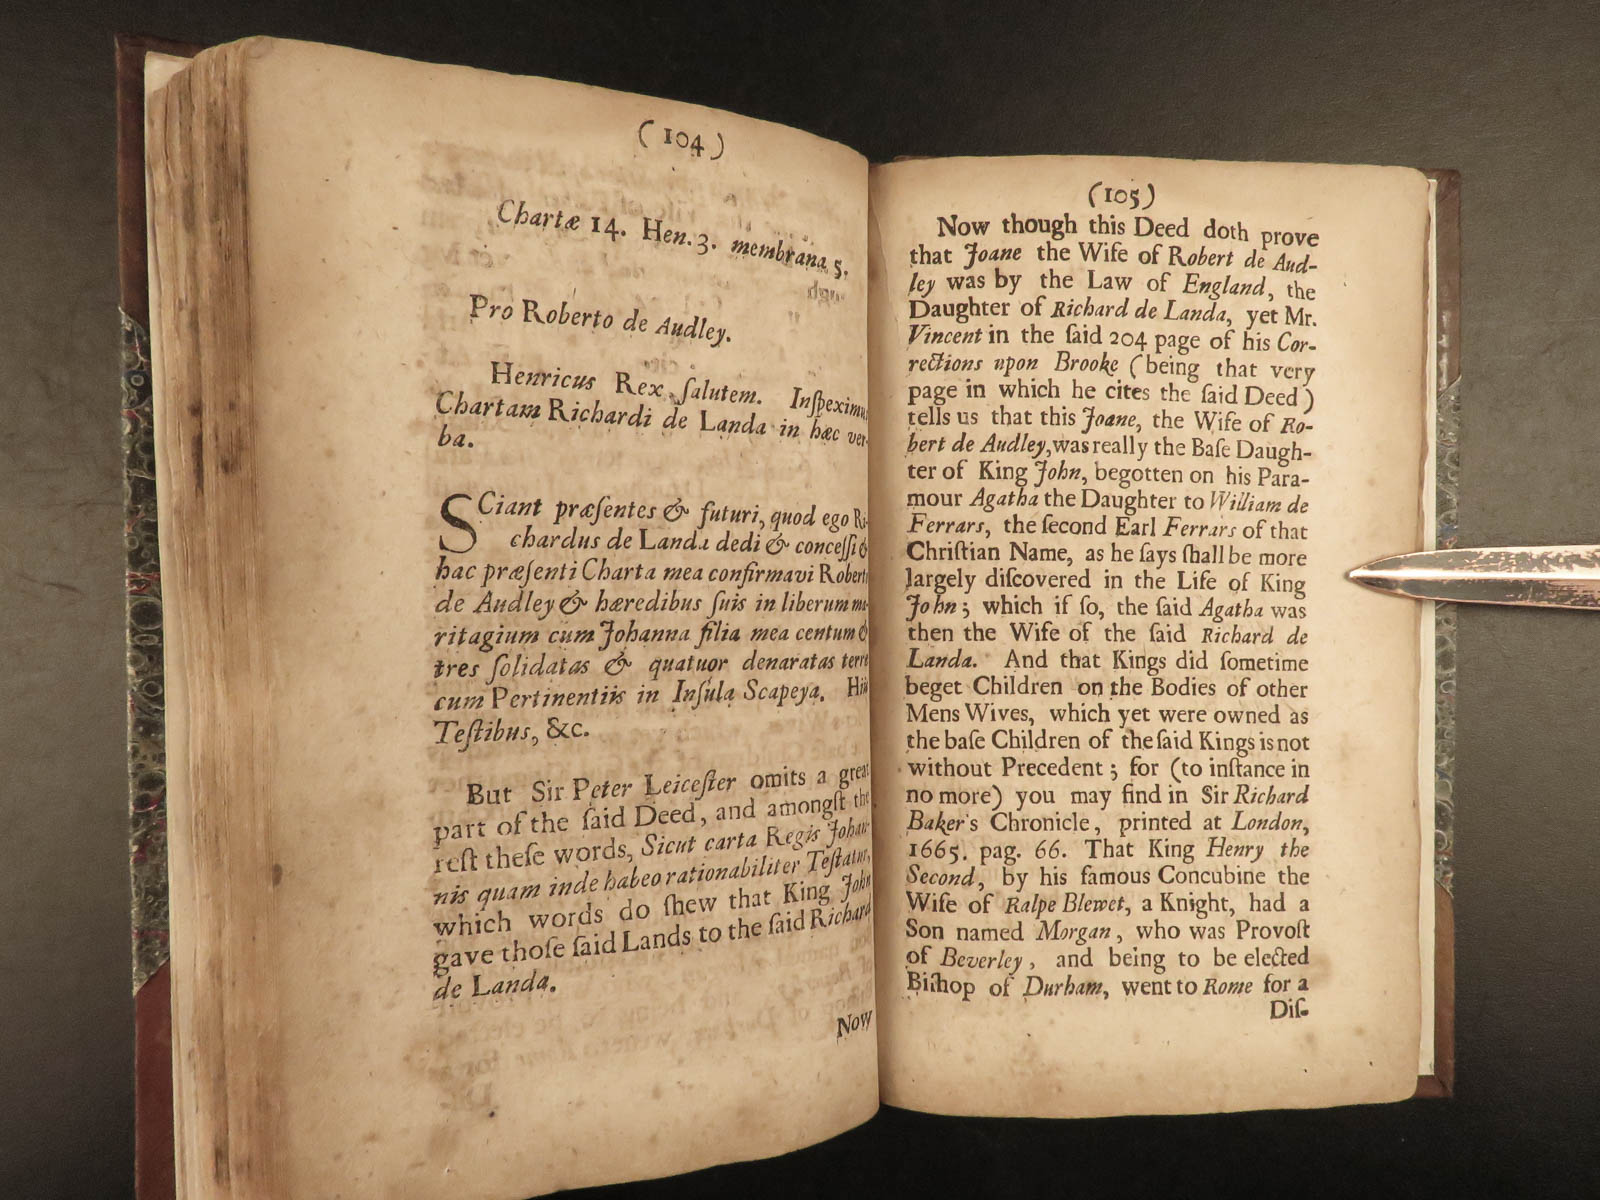 (104)
Chartæ 14. Hen. 3. membrana 5.
Pro Roberto de Audley.
Henricus Rex ſalutem. Inſpeximus
Chartam Richardi de Landa in hæc ver-
ba.
SCiant præſentes & futuri, quod ego Ri-
chardus de Landa dedi & conceſſi &
hac præſenti Charta mea confirmavi Roberto
de Audley & hæredibus ſuis in liberum ma-
ritagium cum Johanna filia mea centum &
tres ſolidatas & quatuor denaratas terre
cum Pertinentiis in Inſula Scapeya. Hiis
Teſtibus, &c.
But Sir Peter Leiceſter omits a great
part of the ſaid Deed, and amongſt the
reſt theſe words, Sicut carta Regis Johan-
nis quam inde habeo rationabiliter Teſtatur,
which words do ſhew that King John
gave thoſe ſaid Lands to the ſaid Richard
de Landa.
Now
(105)
Now though this Deed doth prove
that Joane the Wife of Robert de Aud-
ley was by the Law of England, the
Daughter of Richard de Landa, yet Mr.
Vincent in the ſaid 204 page of his Cor-
rections upon Brooke (being that very
page in which he cites the ſaid Deed)
tells us that this Joane, the Wife of Ro-
bert de Audley, was really the Baſe Daugh-
ter of King John, begotten on his Para-
mour Agatha the Daughter to William de
Ferrars, the ſecond Earl Ferrars of that
Chriſtian Name, as he ſays ſhall be more
largely diſcovered in the Life of King
John; which if ſo, the ſaid Agatha was
then the Wife of the ſaid Richard de
Landa. And that Kings did ſometime
beget Children on the Bodies of other
Mens Wives, which yet were owned as
the baſe Children of the ſaid Kings is not
without Precedent; for (to inſtance in
no more) you may find in Sir Richard
Baker's Chronicle, printed at London,
1665. pag. 66. That King Henry the
Second, by his famous Concubine the
Wife of Ralpe Blewet, a Knight, had a
Son named Morgan, who was Provoſt
of Beverley, and being to be elected
Biſhop of Durham, went to Rome for a
Diſ-